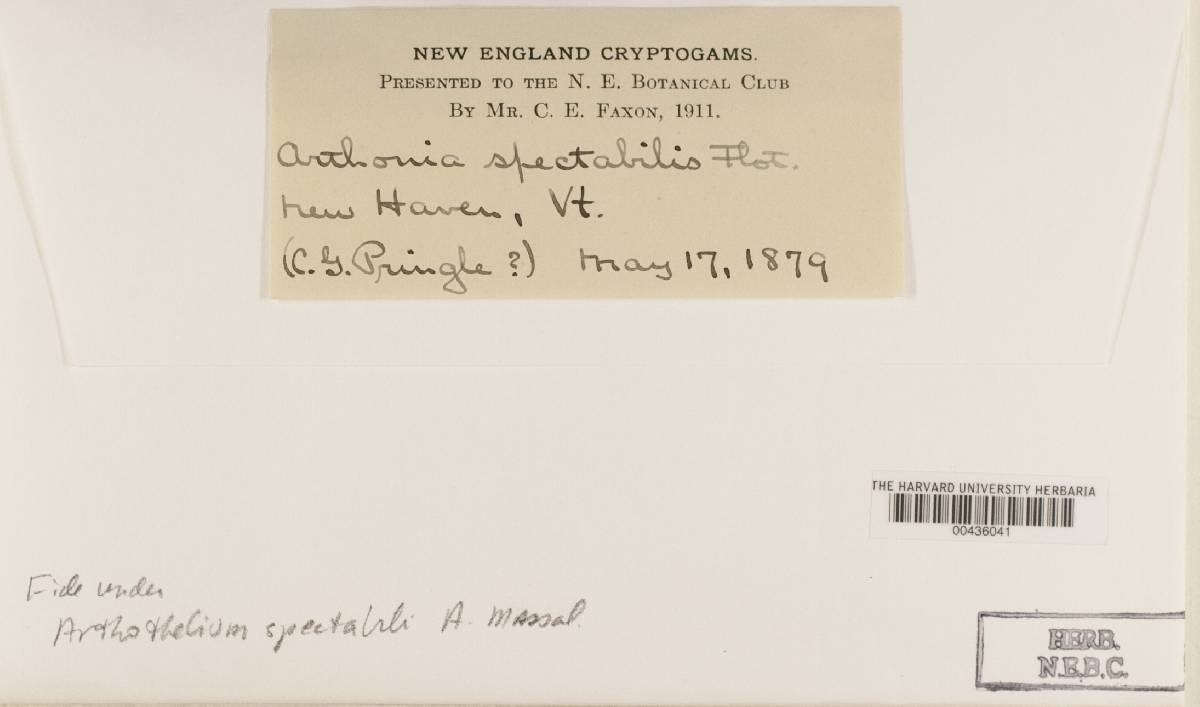 NEW ENGLAND CRYPTOGAMS.
PRESENTED TO THE N. E. BOTANICAL CLUB
BY MR. C. E. FAXON, 1911.
Arthonia spectabilis Flot.
New Haven, Vt.
(C. G. Pringle ?) May 17, 1879
THE HARVARD UNIVERSITY HERBARIA
00436041
File under
Arthothelium spectabili A. Massal.
HERB.
N.E.B.C.